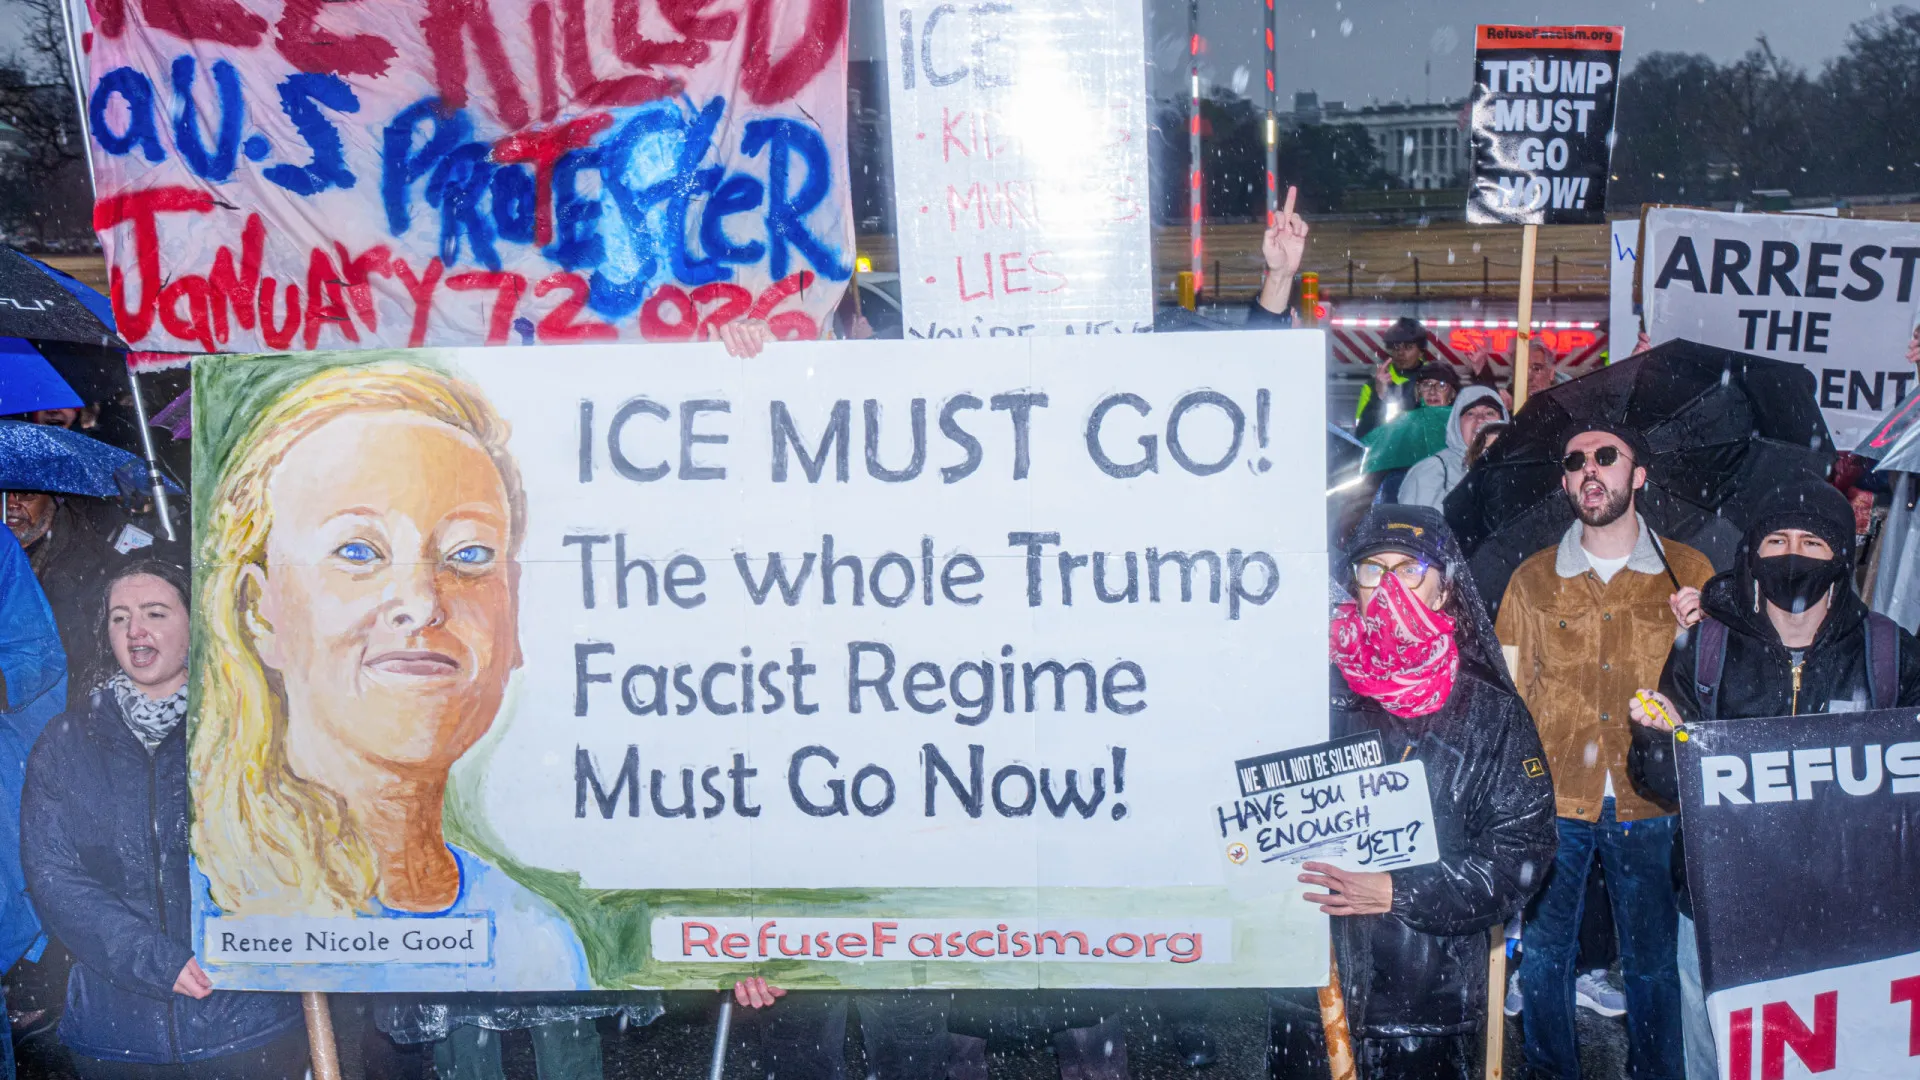 ICE KILLED
a U.S PROTESTER
JANUARY 7, 2026
ICE
LIES
YOU'RE NEXT
RefuseFascism.org
TRUMP
MUST
GO
NOW!
ARREST
THE
DENT
ICE MUST GO!
The whole Trump
Fascist Regime
Must Go Now!
Renee Nicole Good
RefuseFascism.org
WE WILL NOT BE SILENCED
HAVE YOU HAD
ENOUGH
YET?
STOP
REFUS
IN T